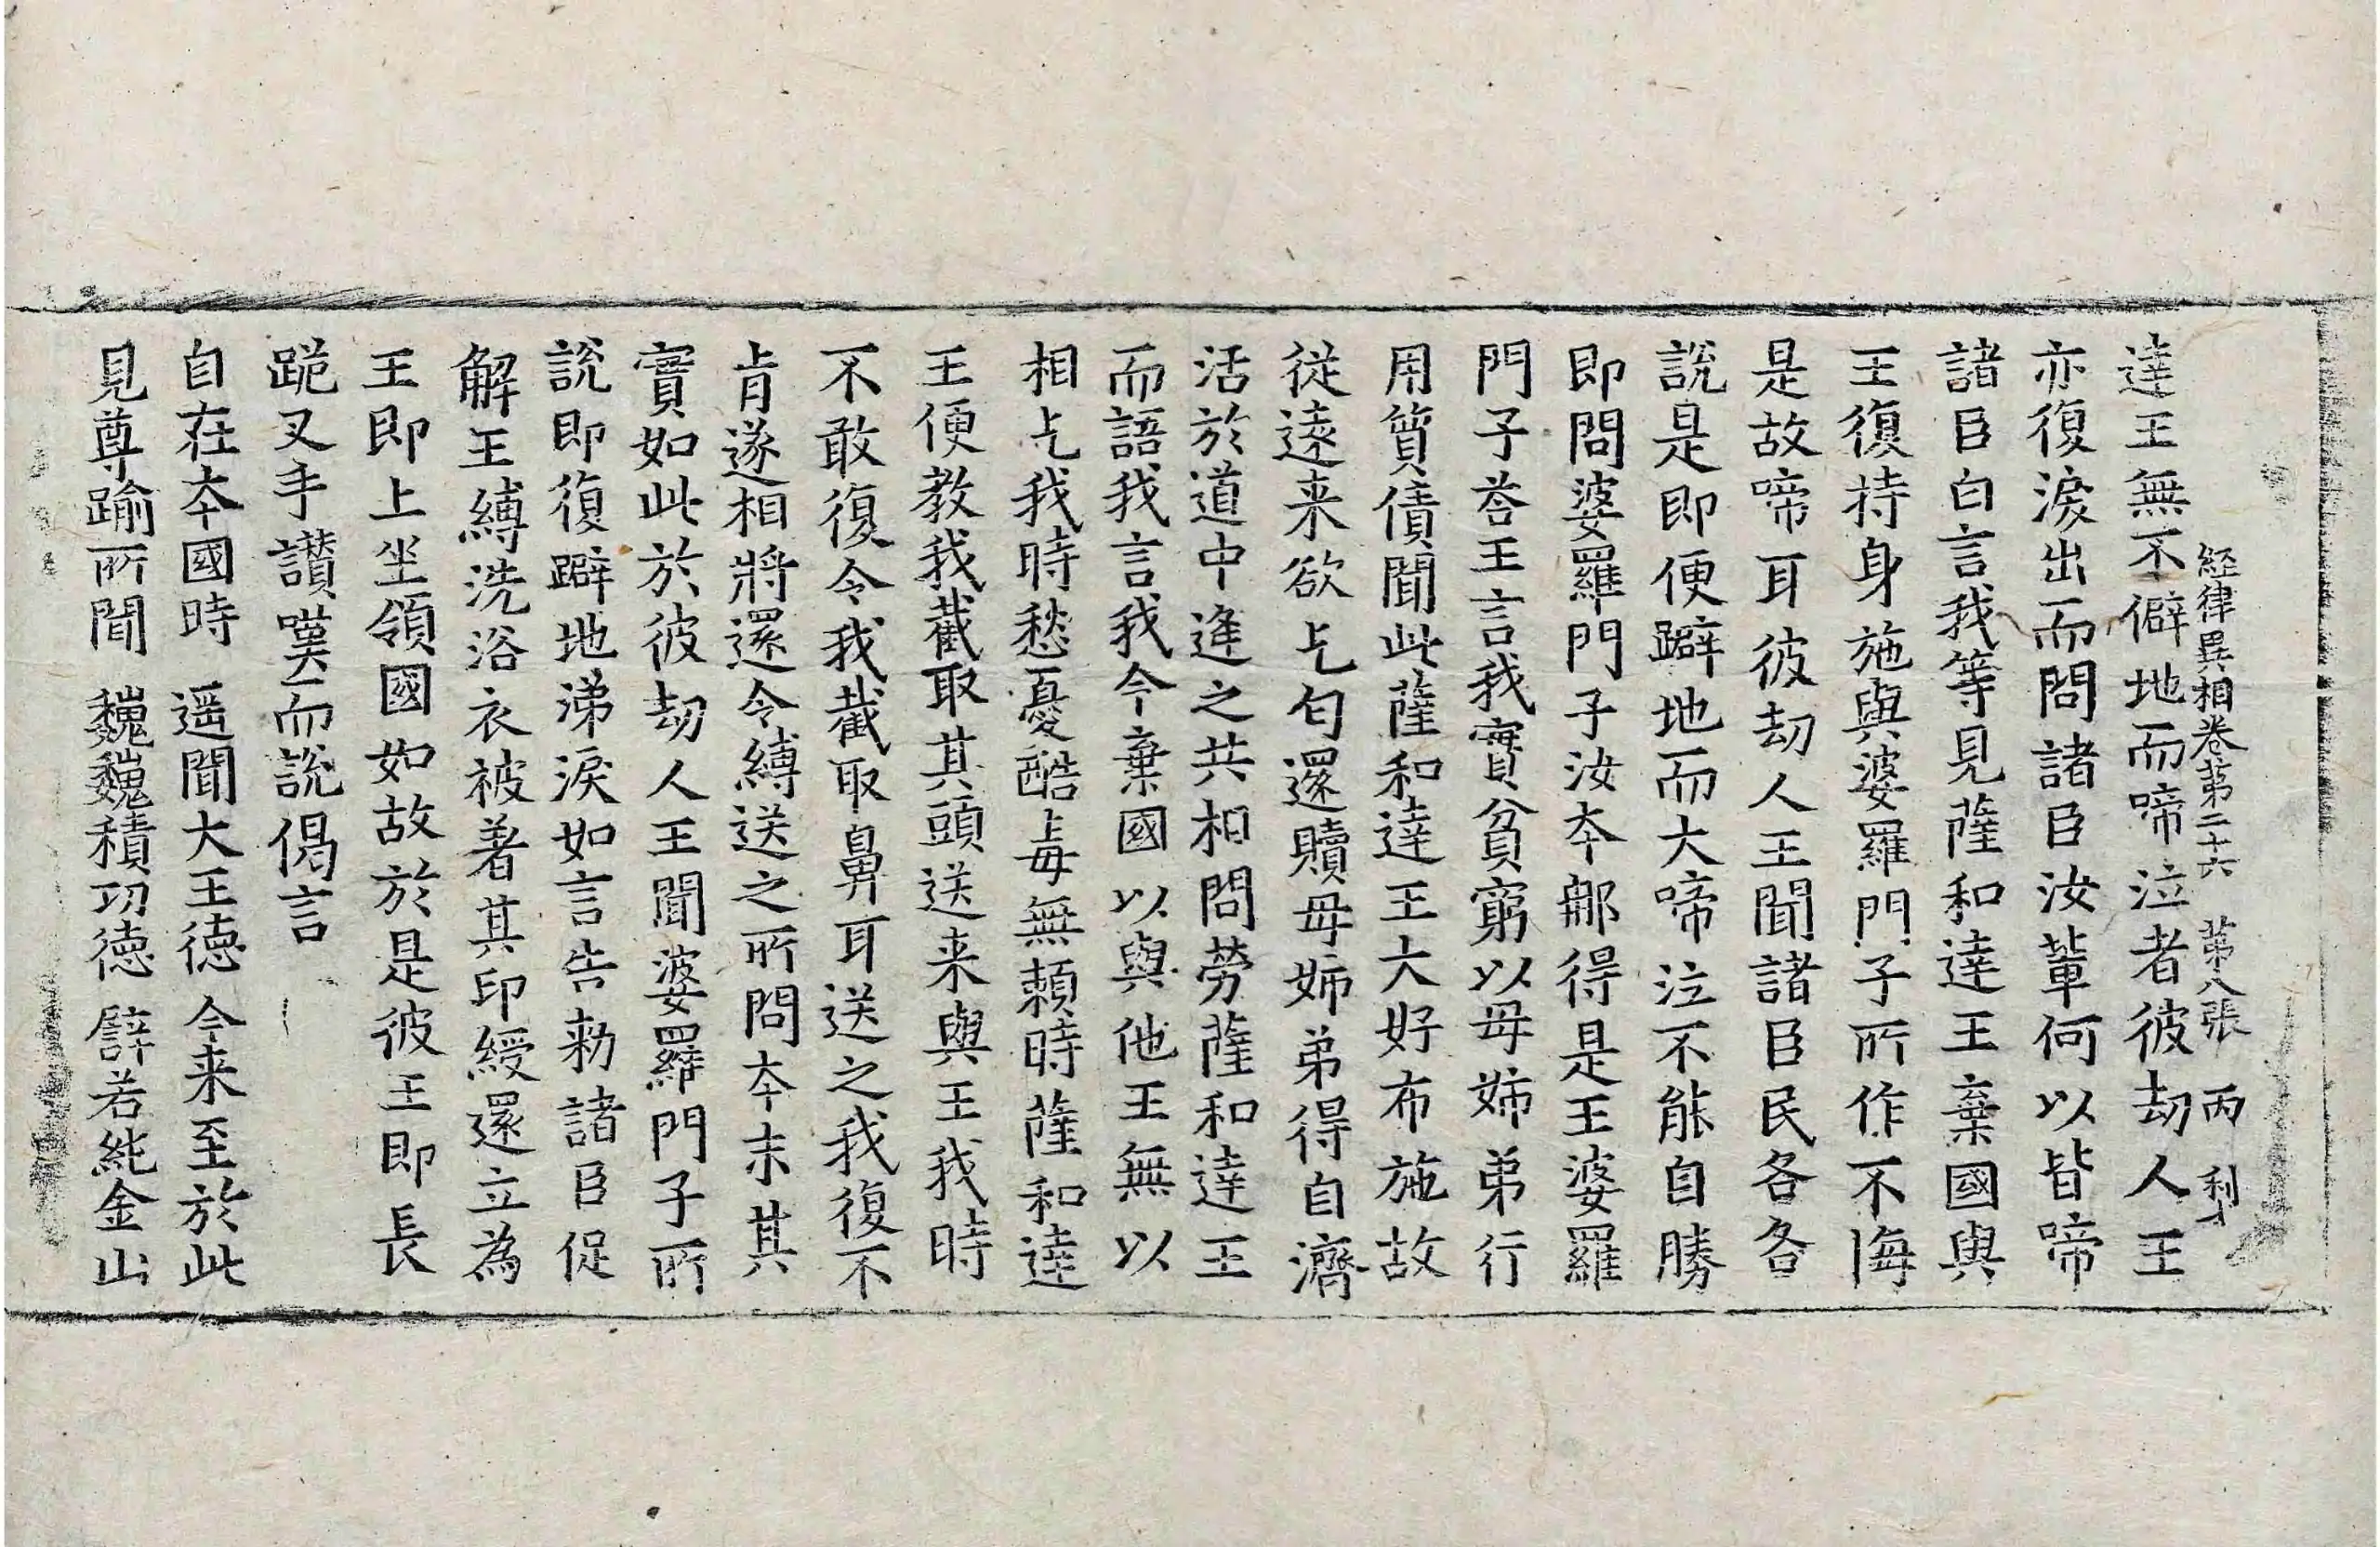 經律異相卷第二十六 第八張 丙 利
達王無不僻地而啼泣者彼劫人王
亦復淚出而問諸臣汝輩何以皆啼
諸臣白言我等見薩和達王棄國與
王復持身施與婆羅門子所作不悔
是故啼耳彼劫人王聞諸臣民各各
說是即便躃地而大啼泣不能自勝
即問婆羅門子汝本那得是王婆羅
門子荅王言我實貧窮以母姉弟行
用質債聞此薩和達王大好布施故
從遠来欲乞匂還贖母姉弟得自濟
活於道中逢之共相問勞薩和達王
而語我言我今棄國以與他王無以
相乞我時愁憂酷毒無賴時薩和達
王便教我截取其頭送来與王我時
不敢復令我截取鼻耳送之我復不
肯遂相將還令縛送之所問本末其
實如此於彼劫人王聞婆羅門子所
說即復躃地涕淚如言告勑諸臣促
解王縛洗浴衣被著其印綬還立為
王即上坐領國如故於是彼王即長
跪叉手讃嘆而說偈言
自在本國時 遥聞大王德 今来至於此
見尊踰所聞 巍巍積功德 譬若純金山